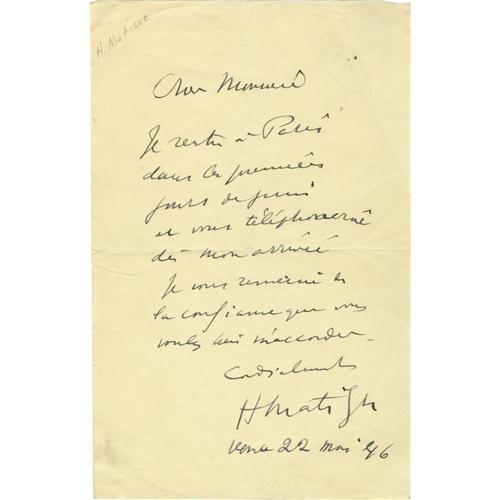 H. Matisse
Cher Monsieur
Je rentre à Paris
dans les premiers
jours de juin
et vous téléphonerai
dès mon arrivée
Je vous remercie de
la confiance que vous
voulez bien m'accorder.
Cordialement
HMatisse
Vence 22 mai 46